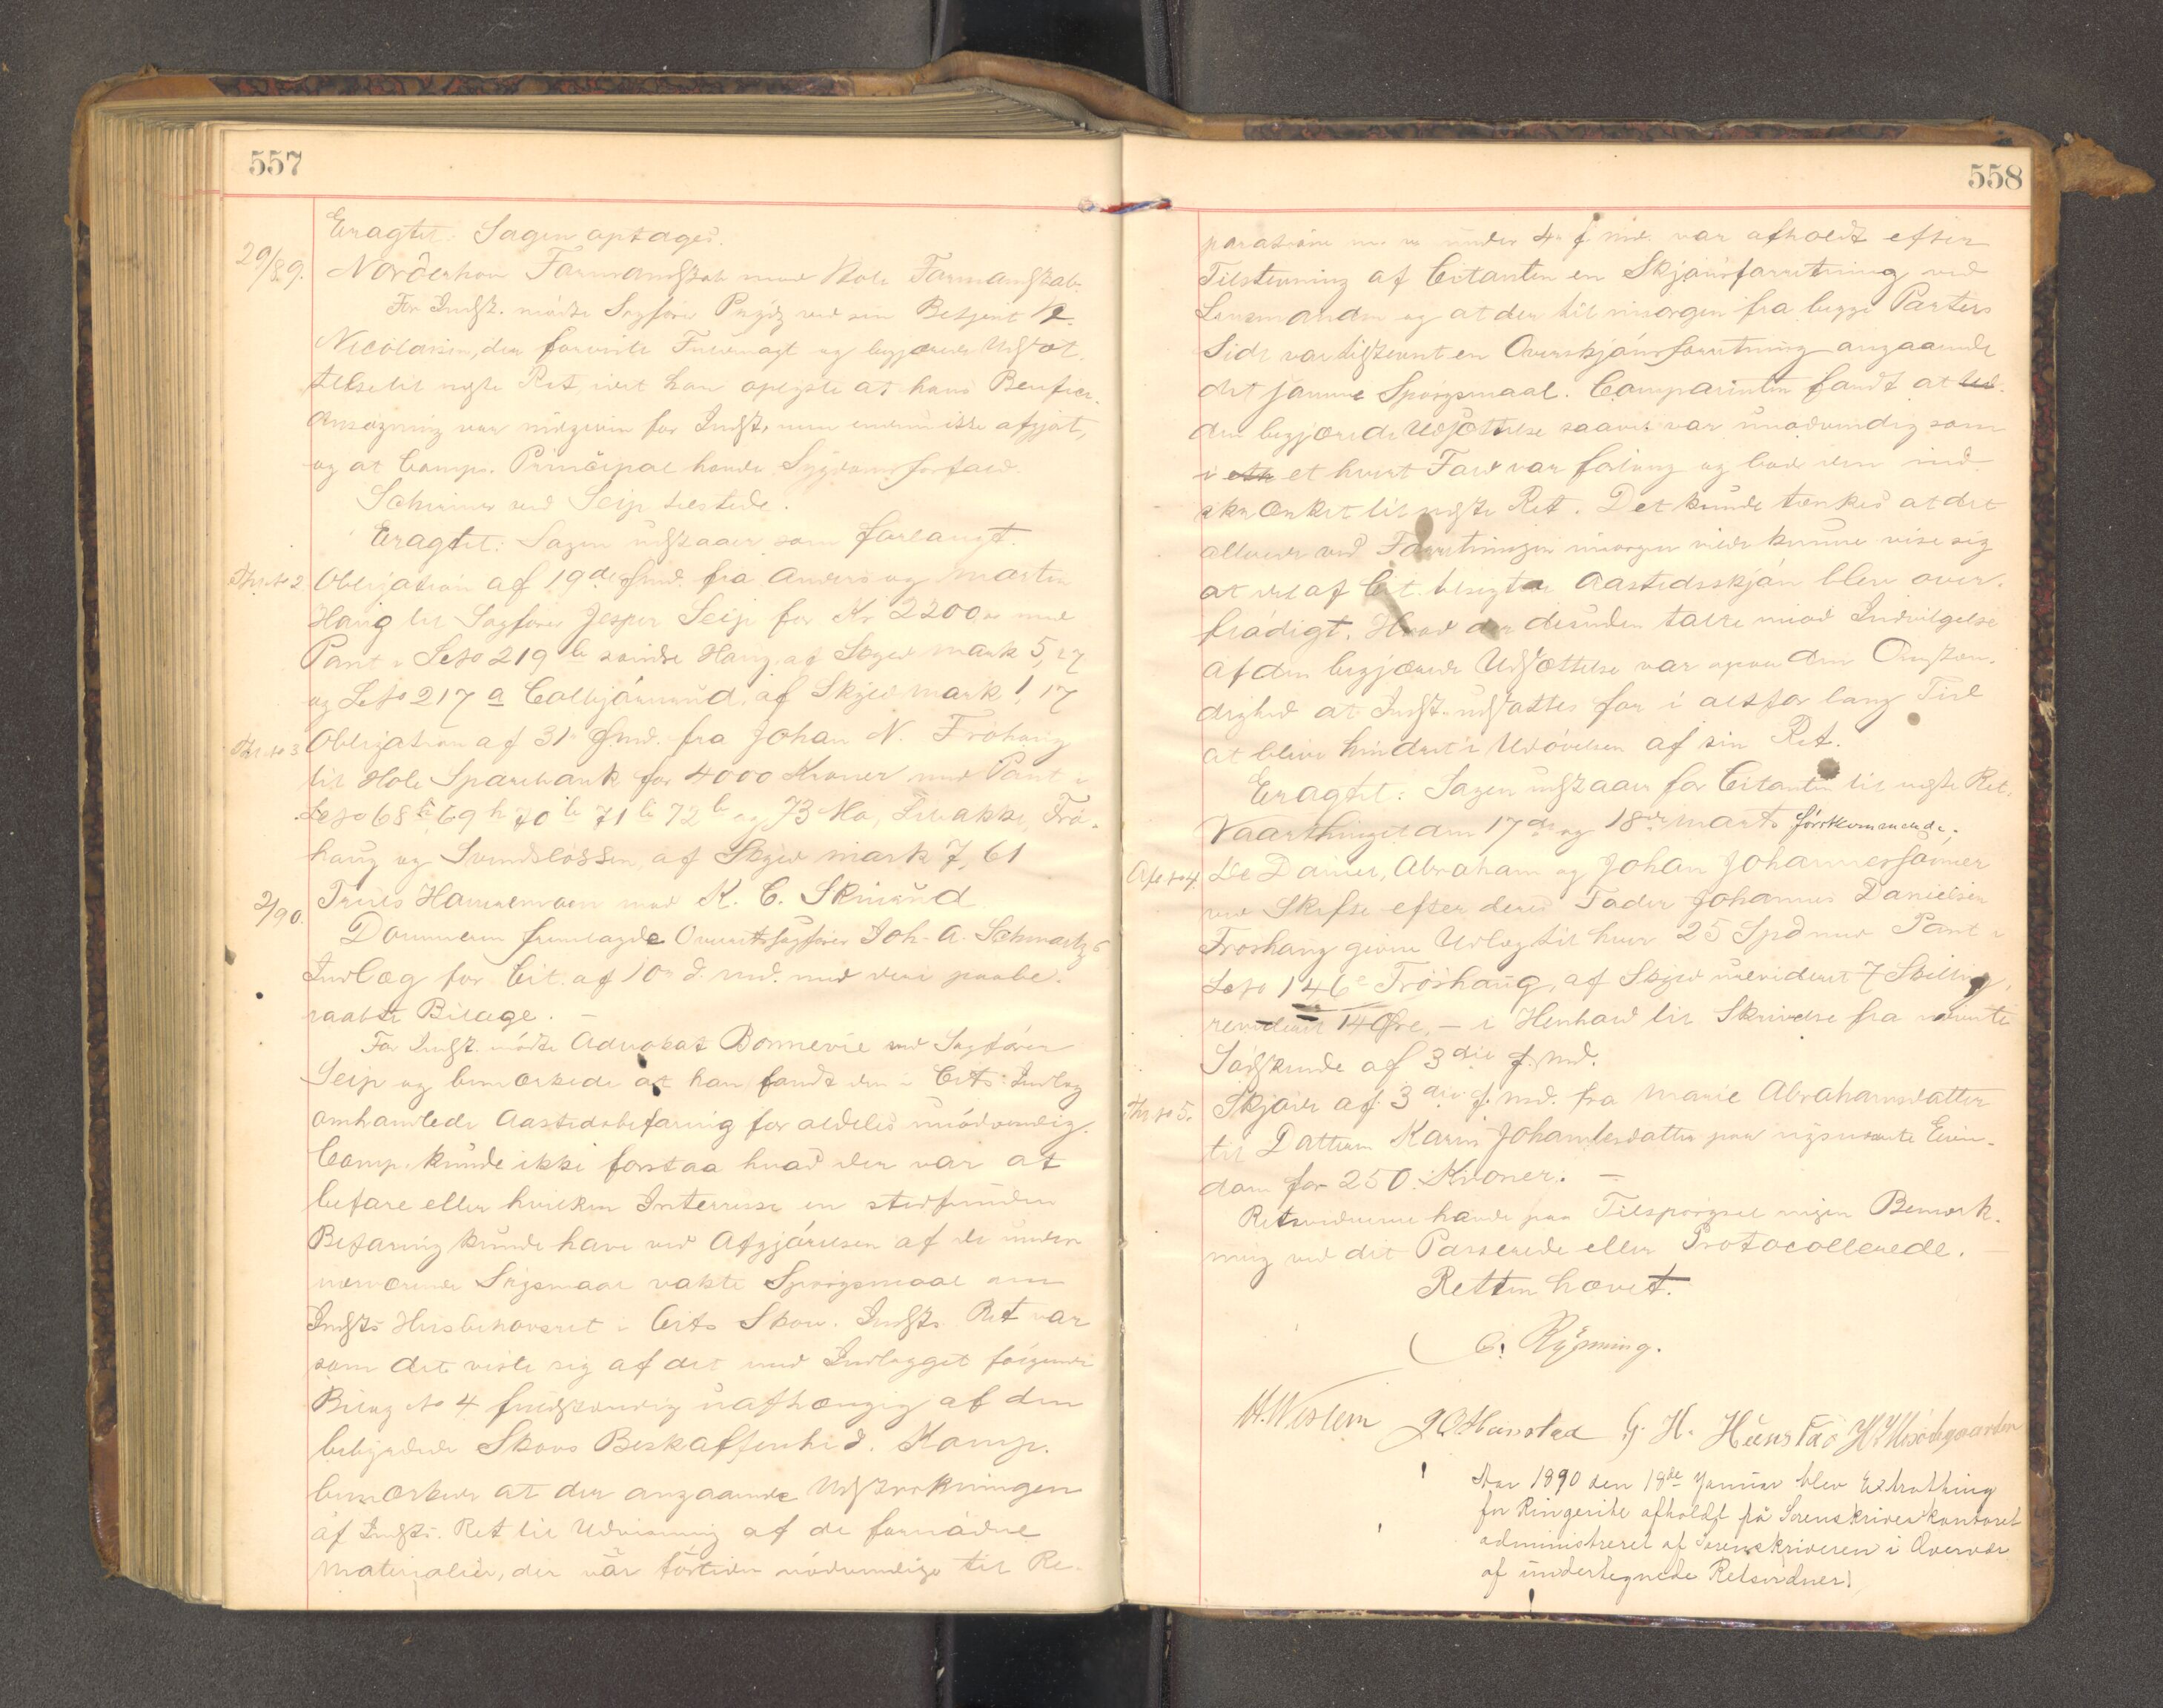 557
Eragtet: Sagen optages.
29/89. Norderhov Formandskab mod Hole Formandskab.
For Indst. mødte Sagfører Prydz ved sin Betjent N.
Nicolaisen, der foreviste Fuldmagt og begjærede Udsæt-
telse til næste Ret, idet han oplyste at hans Benefice-
Ansøgning var indgiven for Indst., men endnu ikke afgjort,
og at Comps. Principal havde Sygdomsforfald.
Schirmer ved Seip tilstede.
Eragtet: Sagen udstaaer som forlangt.
Thr. No 2. Obligation af 19de f. Md. fra Anders og Martin
Haug til Sagfører Jesper Seip for Kr 2200,00 med
Pant i Løbno 219 b søndre Haug, af Skyld Mark 5,27
og Lbno 217 a Colbjørnrud, af Skyld Mark 1,17
Thr. No 3 Obligation af 31 f. Md. fra Johan N. Frøhaug
til Hole Sparebank for 4000 Kroner med Pant i
Lbno 68 b, 69 h 70 b 71 b 72 b og 73 Mo, Frø-
haug og Svendsløssen af Skyld Mark 7,61
2/90. Truls Haurenmoen mod K. C. Skinrud
Dommeren fremlagde Overretssagfører Joh. A. Schwartz's
Indlæg for Cit. af 10 d. Md. med deri paabe-
raabte Bilage. –
For Indst. mødte Advokat Bonnevie ved Sagfører
Seip og bemærkede at han fandt den i Cits Indlæg
omhandlede Aastedsbefaring for aldeles unødvendig.
Comp. kunde ikke forstaa hvad der var at
befare eller hvilken Interesse en stedfunden
Befaring kunde have ved Afgjørelsen af de under
nærværende Søgsmaal vakte Spørgsmaal om
Indsts Husbehovsret i Cits Skov. Indsts Ret var
som det viste sig af det med Indlægget følgende
Bilag No 4 fuldstændig uafhængig af den
bebyrdede Skovs Beskaffenhed. Komp.
bemærkede at der angaaende Udstrækningen
af Indsts. Ret til Udvisning af de fornødne
Materialier, der var fortiden nødvendige til Re-
558
paration under 4 f. Md. var afholdt efter
Tilstevning af Citanten en Skjønsforretning ved
Lensmanden og at der til imorgen fra begge Parters
Side var tilstevnt en Overskjønsforretning angaaende
det samme Spørgsmaal. Comparenten fandt at
den begjærede Udsættelse saavel var unødvendig som
i et hvert Fald var forlang og bad den ind-
skrænket til næste Ret. Det kunde tænkes at det
allerede ved Forretningen imorgen vilde kunne vise sig
at det af Cit. tilsigtede Aastedsskjøn blev over-
flødigt. Hvad der desuden talte imod Indvilgelse
af den begjærede Udsættelse var ogsaa den Omstæn-
dighed at Indst. udsattes for i altfor lang Tid
at blive hindret i Udøvelsen af sin Ret.
Eragtet: Sagen udstaaer for Citanten til næste Ret.
Vaarthinget den 17de og 18de Marts førstkommende.
Afl. No 4. De Daniel, Abraham og Johan Johannessønner
ved Skifte efter deres Fader Johannes Danielsen
Frøshaug givne Udlæg til hver 25 Spd med Pant i
Løbno 146 c Frøshaug, af Skyld urevideret 7 Skilling,
revideret 14 Øre, – i Henhold til Skrivelse fra nævnte
Sødskende af 3die f. Md.
Thr. No 5. Skjøde af 3die f. Md. fra Marie Abrahamsdatter
til Datteren Karen Johannesdatter paa nysnævnte Eien-
dom for 250 Kroner. –
Retsvidnerne havde paa Tilspørgsel ingen Bemærk-
ning ved det Passerede eller Protocollerede. –
Retten hævet.
C. Rypning.
H. Western G. H. Hunstad
Aar 1890 den 18de Januar blev Extrathing
for Ringerike afholdt på Sorenskriverkontoret
administreret af Sorenskriveren i Overvær
af undertegnede Retsvidner: